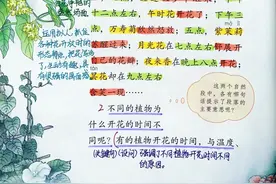 十二点左右，午时花开花了；下午三
点，万寿菊欣然怒放；五点，紫茉莉
苏醒过来；月光花在七点左右舒展开
自己的花瓣；夜来香在晚上八点开花；
昙花却在九点左右
含笑一现……
运用拟人，把
各种花开放时的
这两个自然
段中，各有哪句
话提示了段落的
主要意思呢？
2 不同的植物为
什么开花的时间不
同呢？有的植物开花的时间，与温度、
(关键句)(设问)强调了不同植物开花时间不同
的原因。